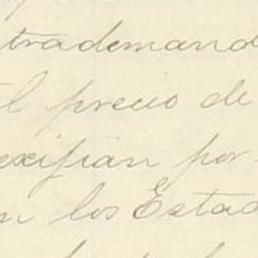 trademand
el precio de
exifian por
n los Estad